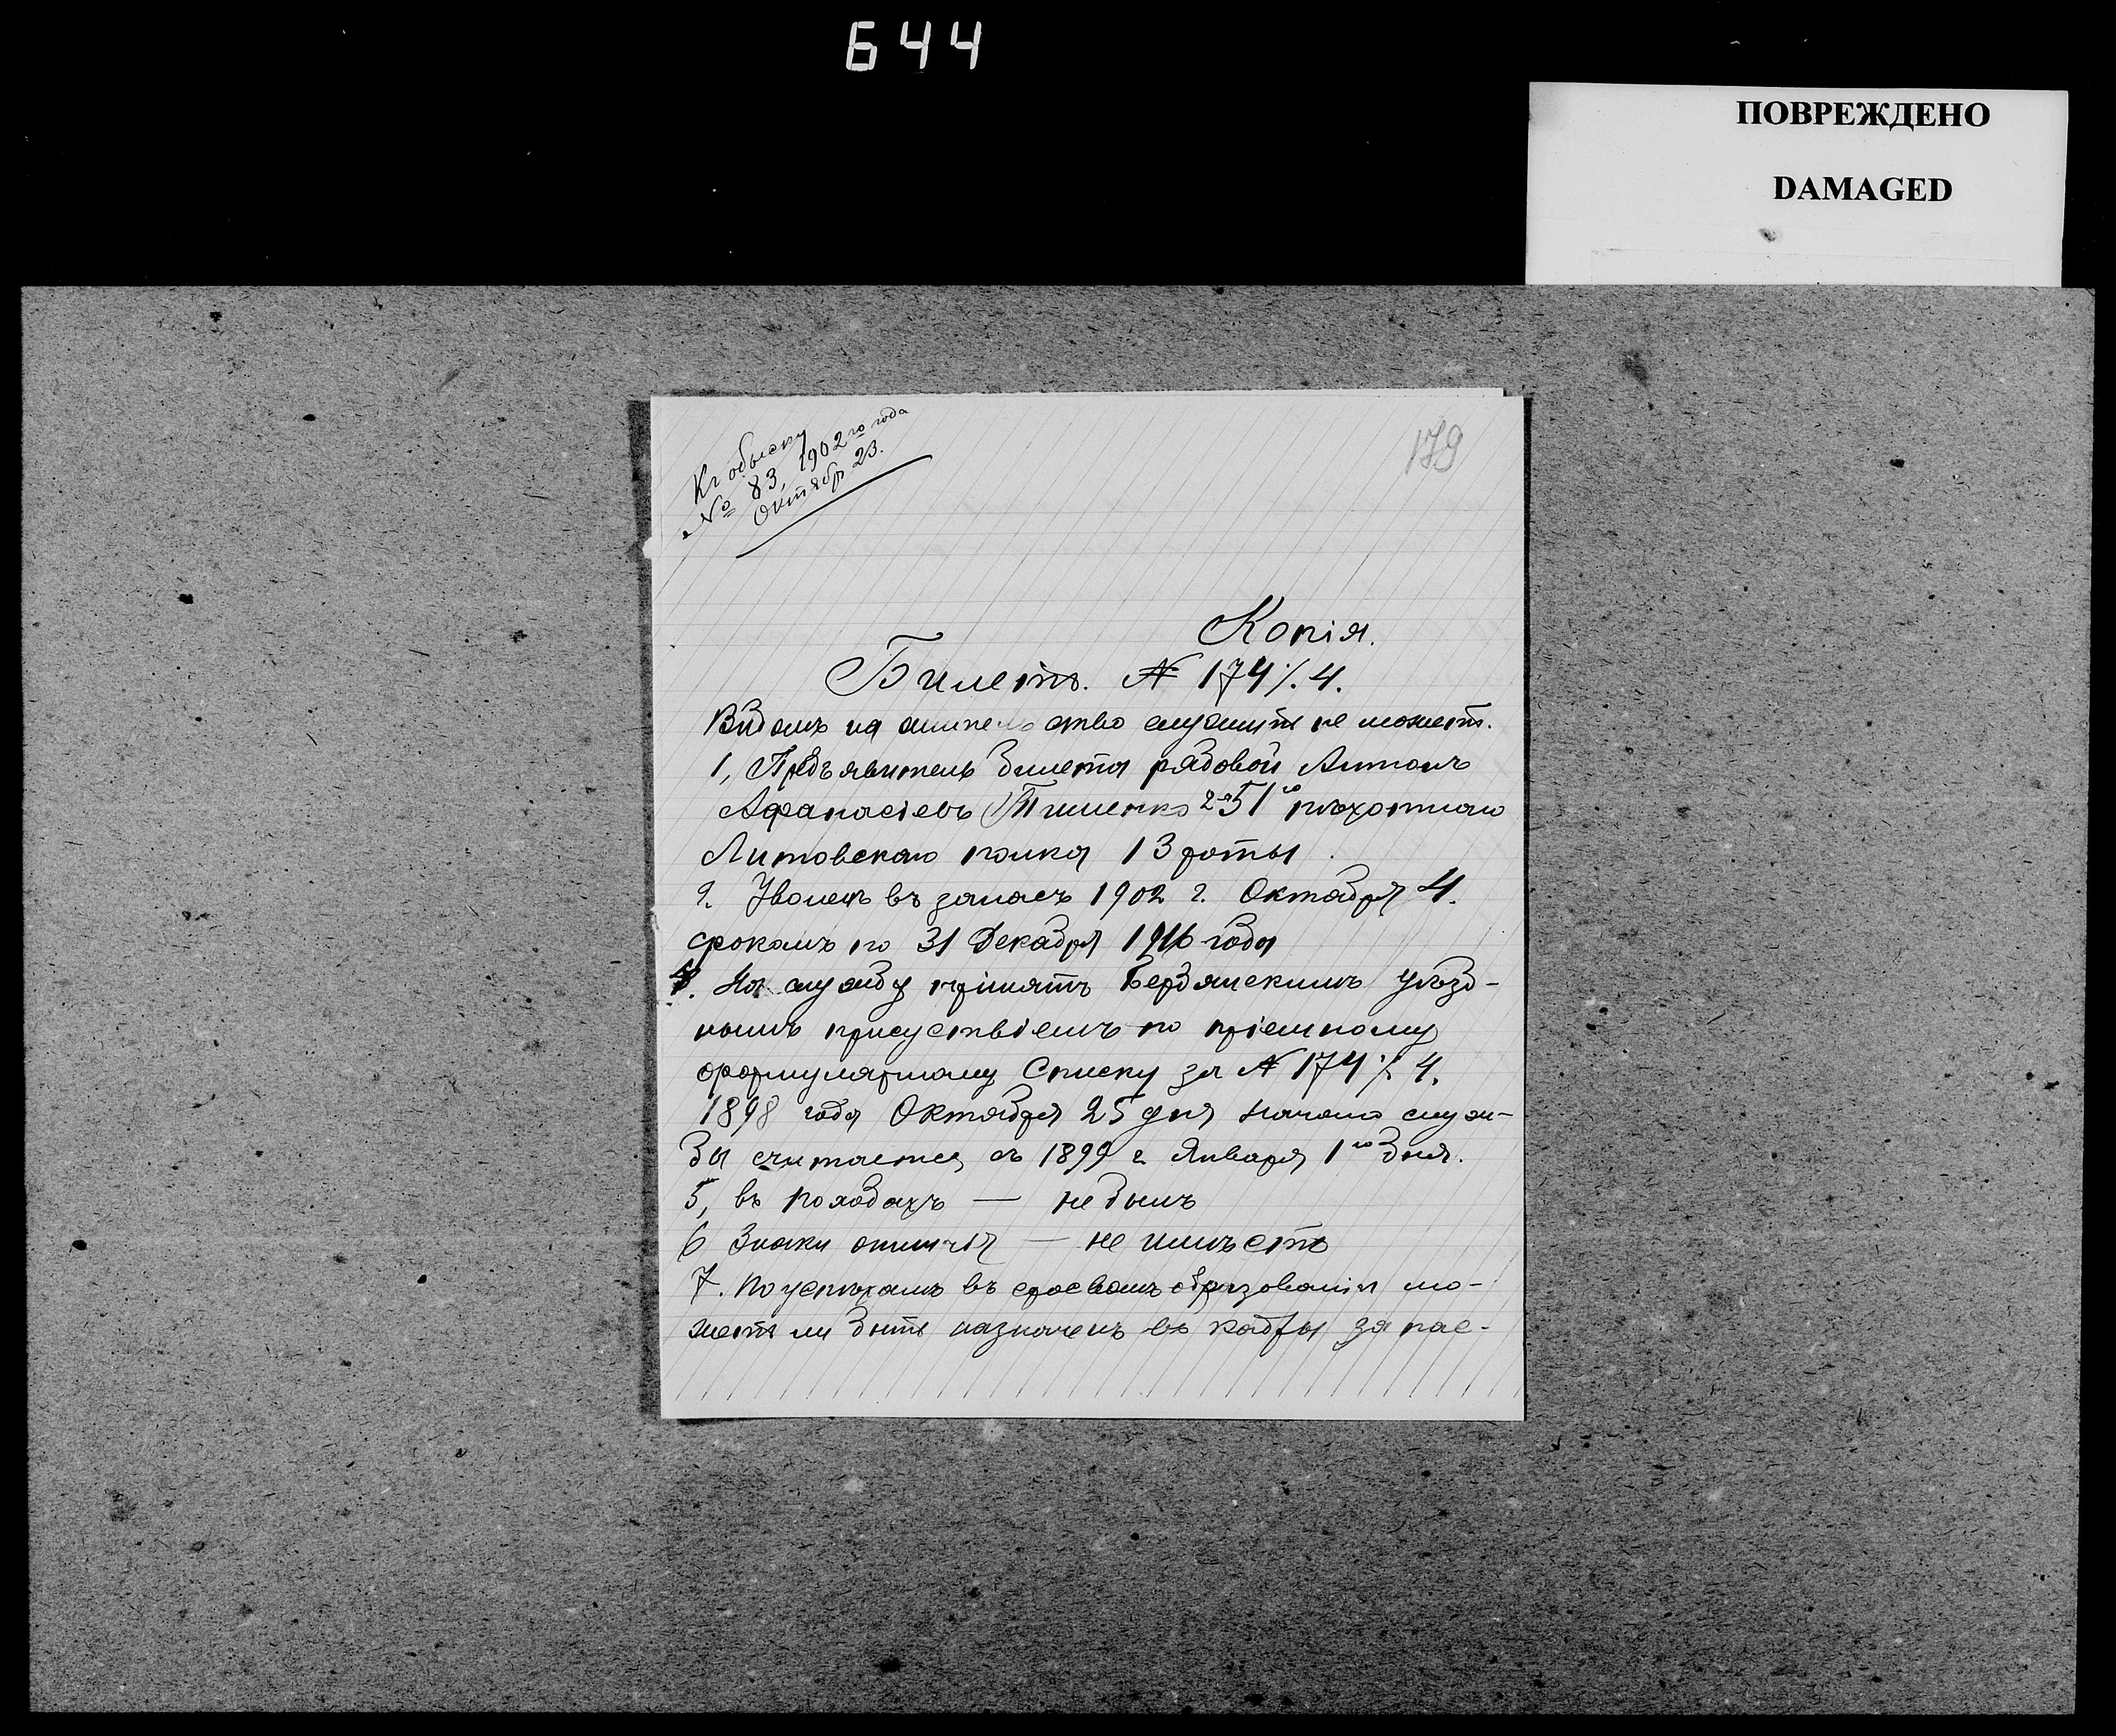 644
ПОВРЕЖДЕНО
DAMAGED
Къ обыску
№ 83, 1902го года
Октябр 23.
179
Копія.
Билетъ. № 174 ⁒ 4.
Видомъ на жительство служить не можетъ.
1, Предъявитель билета рядовой Антонъ
Афанасіевъ Тишенко 51го пѣхотнаго
Литовскаго полка 13 роты
2. Уволенъ въ запасъ 1902 г. Октября 4.
срокомъ по 31 Декабря 1916 года
4. На службу принятъ Бердянскимъ уѣзд-
нымъ присуствіемъ по пріемному
формулярному Списку за № 174 ⁒ 4.
1898 года Октября 25 дня начало служ-
бы считается съ 1899 г. Января 1го дня.
5, въ походахъ — не былъ
6 Знаки отличія — не имѣетъ
7. По успѣхамъ въ строевомъ образованіи мо-
жетъ ли быть назначенъ въ кадры запас-